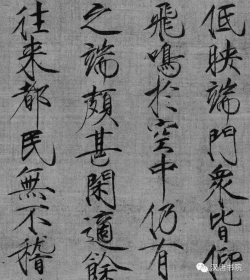 低映端門眾皆仰
飛鳴於空中仍有
之端頗甚閑適餘
往来都民無不稽
汉唐书院